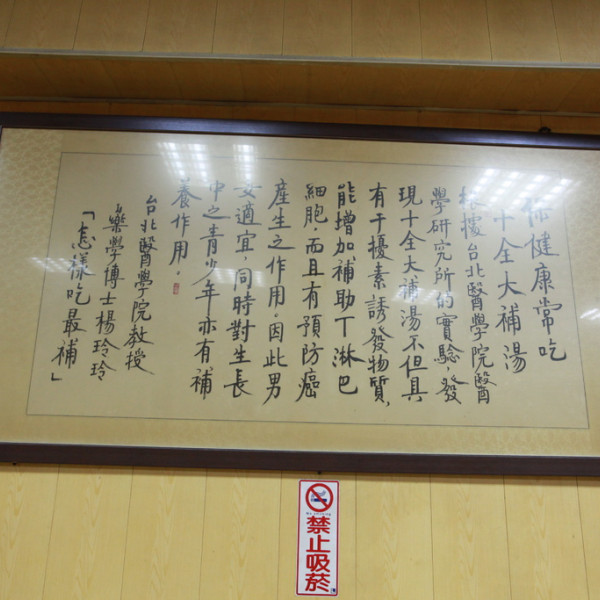 保健康常吃
十全大補湯
根據台北醫學院醫
學研究所的實驗，發
現十全大補湯不但具
有干擾素誘發物質，
能增加補助丅淋巴
細胞，而且有預防癌
產生之作用，因此男
女適宜，同時對生長
中之青少年亦有補
養作用。
台北醫學院教授
藥學博士楊玲玲
「怎樣吃最補」
禁止吸菸